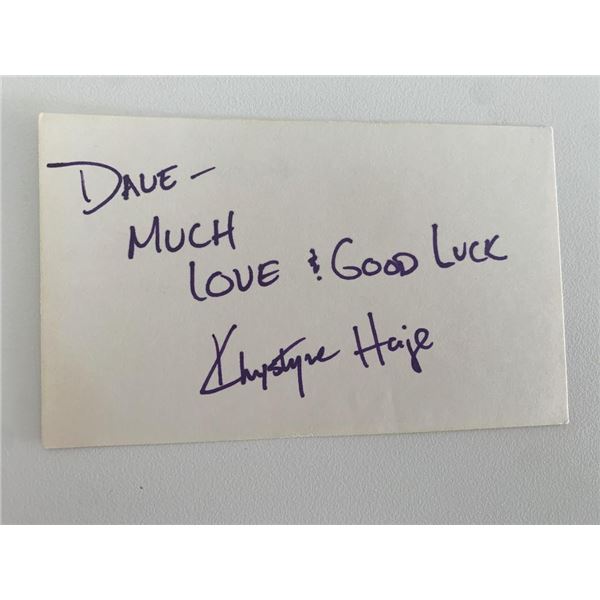 DAVE -
MUCH
LOVE & GOOD LUCK
Khrystyne Haje